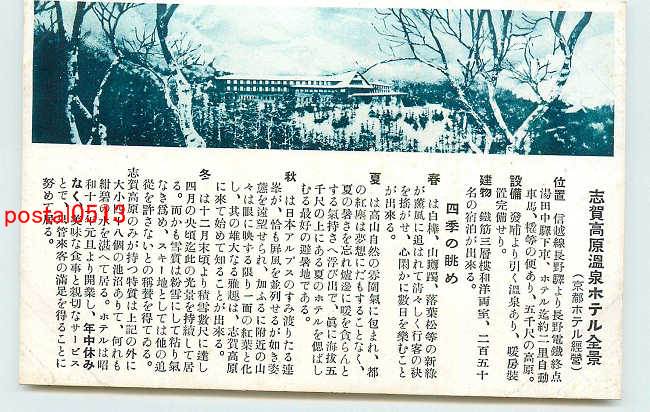 志賀高原溫泉ホテル全景
(京都ホテル經營)
位置 信越線長野驛より長野電鐵終点
湯田中驛下車、ホテル迄約二里自動
車馬、橇等の便あり、五千尺の高原。
設備 發哺より引く溫泉あり、暖房裝
置完備せり。
建物 鐵筋三層樓和洋兩室、二百五十
名の宿泊が出來る。
四季の眺め
春 は白樺、山躑躅、落葉松等の新綠
が薰風に追はれて淸々しく行客の袂
を搖がせ、心閑かに數日を樂むこと
が出來る。
夏 は高山自然の雰圍氣に包まれ、都
の紅塵は夢想にだもすることなく、
夏の暑さを忘れ爐邊に暖を貪らんと
する氣持さへ浮び出で、眞に海拔五
千尺の上にある夏のホテルを偲ばし
むる最好の避暑地である。
秋 は日本アルプスのすみ渡りたる連
峯が、恰も屏風を並列せるが如き姿
態を遠望せられ、加ふるに附近の山
々は眼に映ずる限り一面の紅葉と化
し、其の雄大なる雅趣は、志賀高原
に來て始めて知ることが出來る。
冬 は十二月末頃より積雪數尺に達し
四月の頃迄此の光景を持續して居
る。而かも雪質は粉雪にして粘り氣
なき爲め、スキー地としては他の追
從を許さないとの稱賛を得てゐる。
志賀高原のみが持つ特質は上記の外に
大小四十八個の池沼ありて、何れも
紺碧の水を湛へて居る。ホテルは昭
和十二年元旦より開業し、年中休み
なく、美味な食事と親切なサービス
とで、出管來客の滿足を得ることに
努めて居る。
postal0513